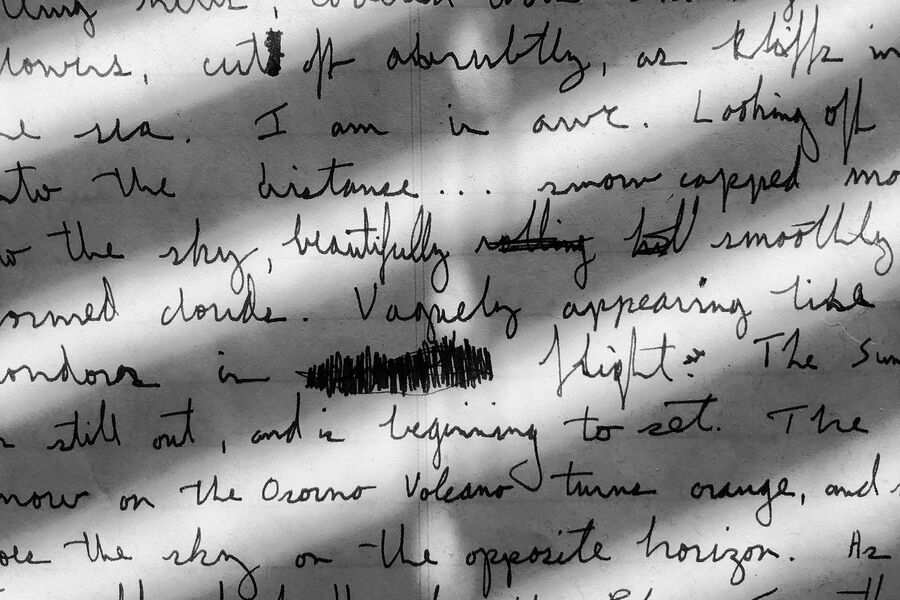 lowers, cut off abrubtly, as kliffs in
he sea. I am in awe. Looking off
nto the distance... snow capped mo
o the sky, beautifully rolling smoothly
ormed clouds. Vaguely appearing like
ondors in flight. The Sun
still out, and is beginning to set. The
now on the Osorno Volcano turns orange, and
oes the sky on the opposite horizon. As